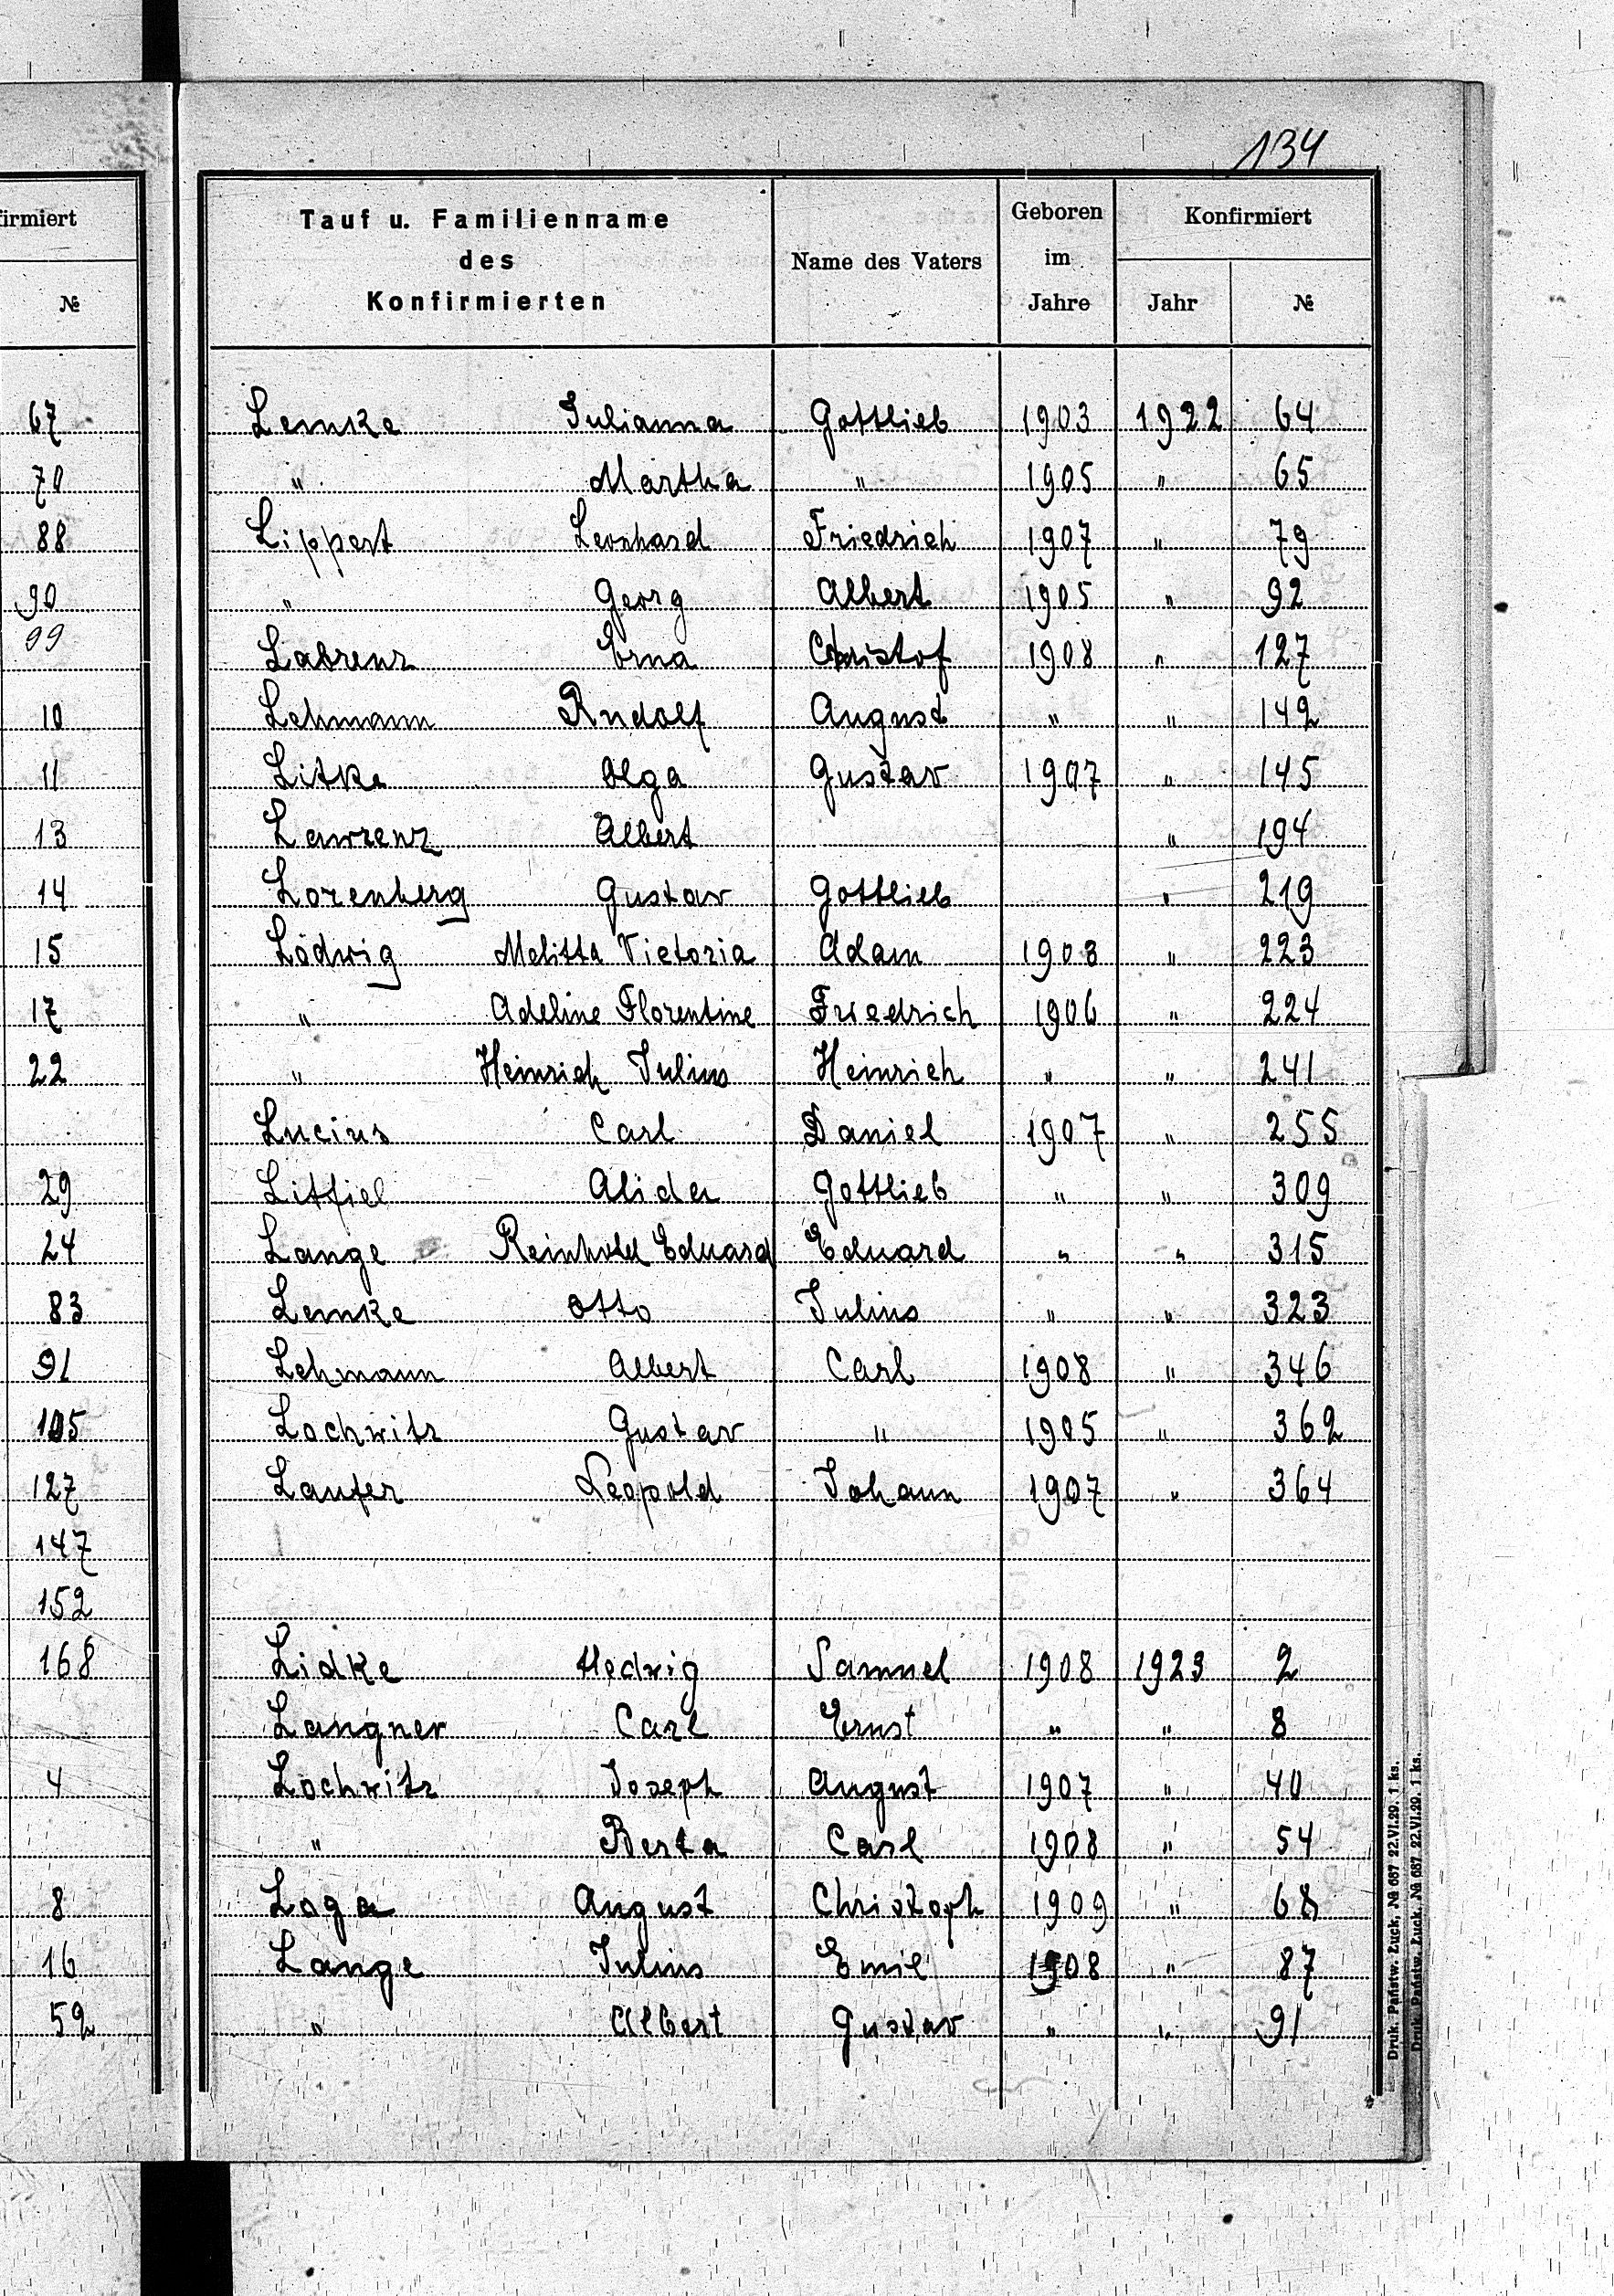 134
firmiert
№
67
70
88
90
99
10
11
13
14
15
17
22
29
24
83
91
105
127
147
152
168
4
8
16
52
Tauf u. Familienname des Konfirmierten
Name des Vaters
Geboren im Jahre
Konfirmiert
Jahr
№
Lemke Julianna Gottlieb 1903 1922 64
" Martha " 1905 " 65
Lippert Leonhard Friedrich 1907 " 79
" Georg Albert 1905 " 92
Labrenz Erna Christof 1908 " 127
Lehmann Rudolf August " " 142
Litke Olga Gustav 1907 " 145
Lawrenz Albert " 194
Lorenberg Gustav Gottlieb " 219
Lödwig Melitta Victoria Adam 1908 " 223
" Adeline Florentine Friedrich 1906 " 224
" Heinrich Julius Heinrich " " 241
Lucius Carl Daniel 1907 " 255
Litfiel Alida Gottlieb " " 309
Lange Reinhold Eduard Eduard " " 315
Lemke Otto Julius " " 323
Lehmann Albert Carl 1908 " 346
Lochwitz Gustav " 1905 " 362
Laufer Leopold Johann 1907 " 364
Lidke Hedwig Samuel 1908 1923 2
Langner Carl Ernst " " 8
Lochwitz Joseph August 1907 " 40
" Berta Carl 1908 " 54
Loga August Christoph 1909 " 68
Lange Julius Emil 1908 " 87
" Albert Gustav " " 91
Druk. Państw. Łuck, № 687 22.VI.29. 1 ks.
Druk. Państw. Łuck, № 687 22.VI.29. 1 ks.